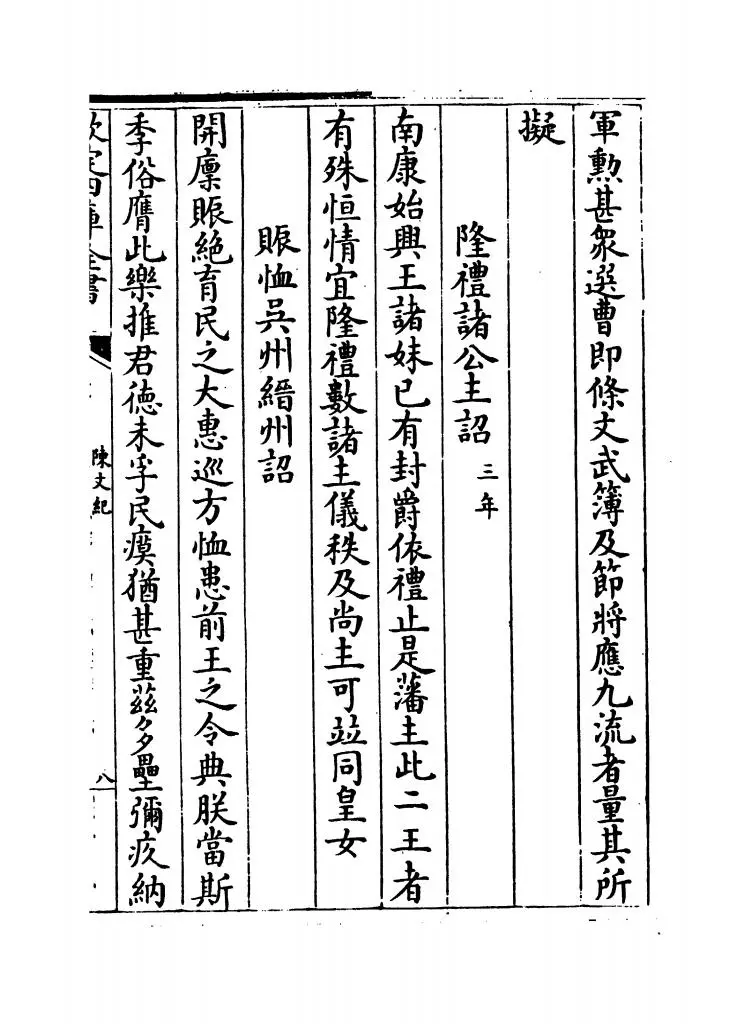 軍勲甚衆選曹即條文武簿及節將應九流者量其所
擬
隆禮諸公主詔 三年
南康始興王諸妹已有封爵依禮止是藩主此二王者
有殊恒情宜隆禮數諸主儀秩及尚主可竝同皇女
賑恤吳州縉州詔
開廩賑絶育民之大惠巡方恤患前王之令典朕當斯
季俗膺此樂推君徳未孚民瘼猶甚重茲多壘彌疚納
欽定四庫全書
陳文紀
八